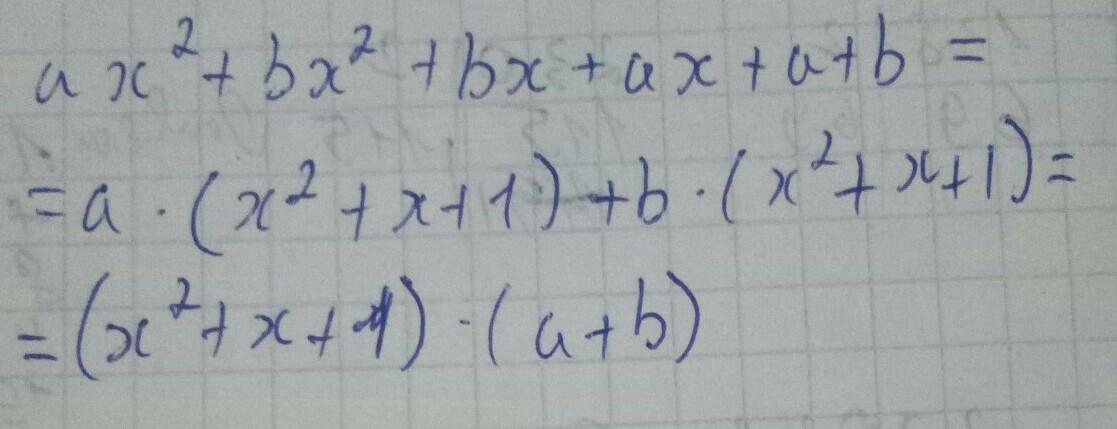 ax² + bx² + bx + ax + a + b =
= a · (x² + x + 1) + b · (x² + x + 1) =
= (x² + x + 1) · (a + b)